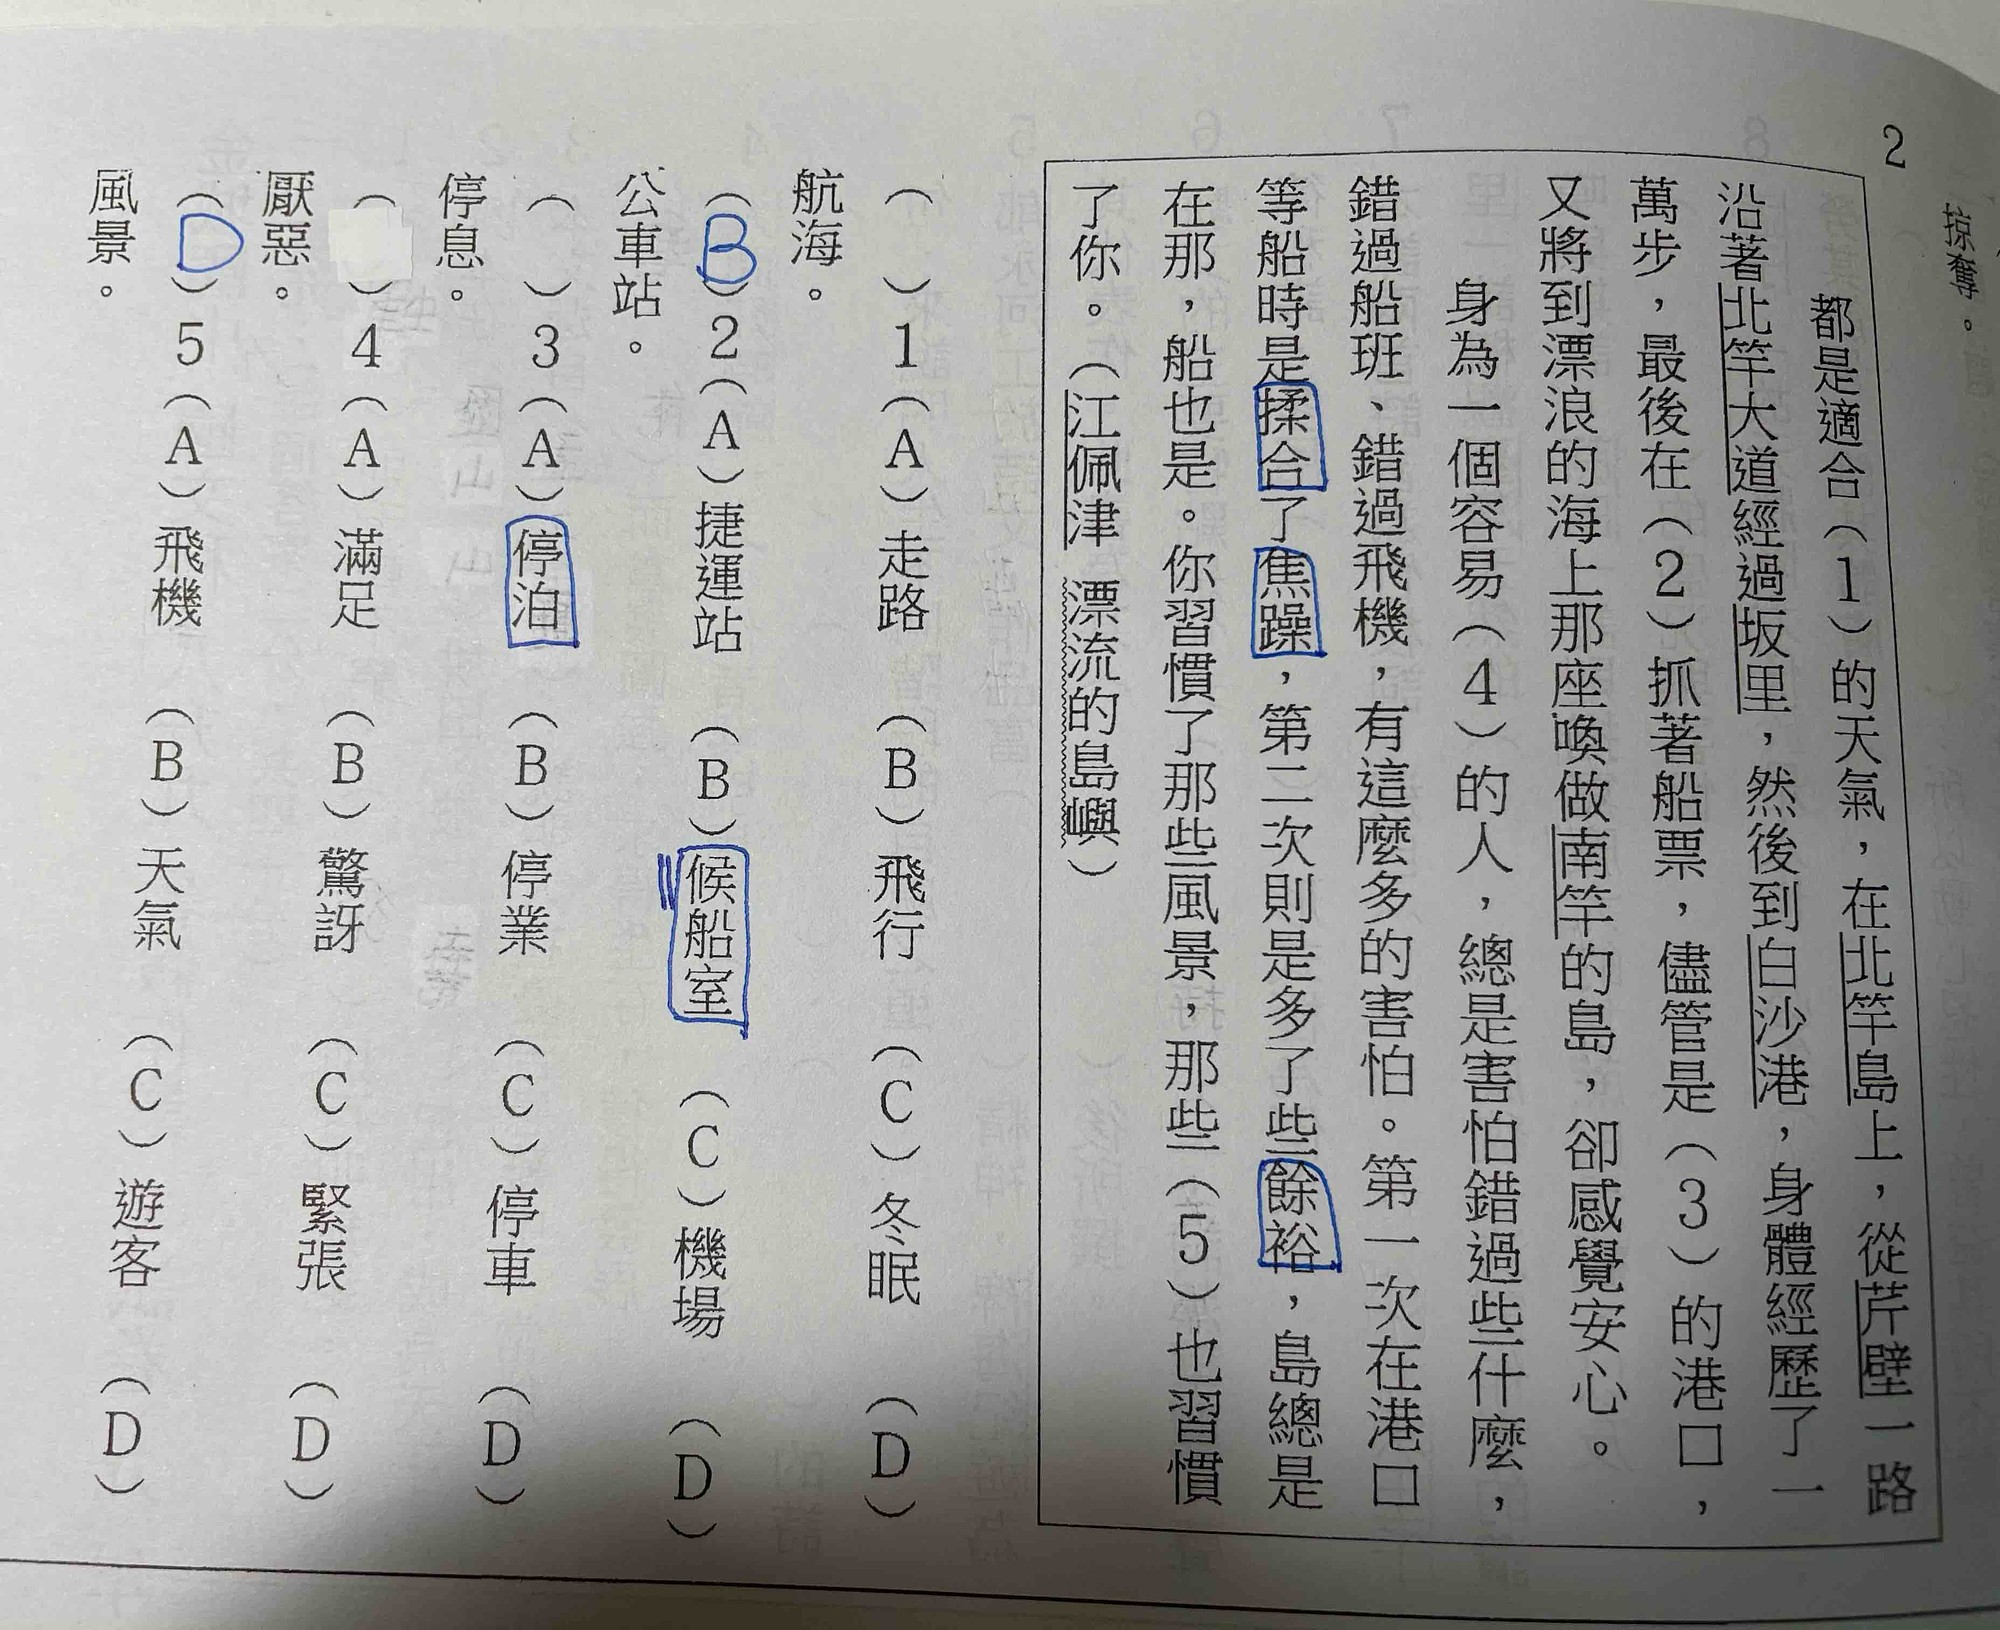 掠奪。
2
都是適合（1）的天氣，在北竿島上，從芹壁一路
沿著北竿大道經過坂里，然後到白沙港，身體經歷了一
萬步，最後在（2）抓著船票，儘管是（3）的港口，
又將到漂浪的海上那座喚做南竿的島，卻感覺安心。
身為一個容易（4）的人，總是害怕錯過些什麼，
錯過船班、錯過飛機，有這麼多的害怕。第一次在港口
等船時是揉合了焦躁，第二次則是多了些餘裕，島總是
在那，船也是。你習慣了那些風景，那些（5）也習慣
了你。（江佩津 漂流的島嶼）
（ ）1（A）走路 （B）飛行 （C）冬眠 （D）
航海。
（B）2（A）捷運站 （B）候船室 （C）機場 （D）
公車站。
（ ）3（A）停泊 （B）停業 （C）停車 （D）
停息。
（ ）4（A）滿足 （B）驚訝 （C）緊張 （D）
厭惡。
（D）5（A）飛機 （B）天氣 （C）遊客 （D）
風景。